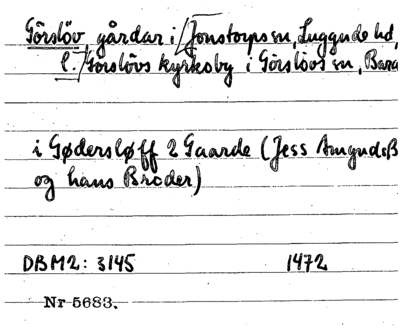 Görslöv gårdar i/Jonstorps sn, Luggude hd,
l./Görslövs kyrkoby i Görslövs sn, Bara
i Gødersløff 2 Gaarde (Jess Amgudsß
og hans Broder)
DBM2: 3145 1472
Nr 5683.